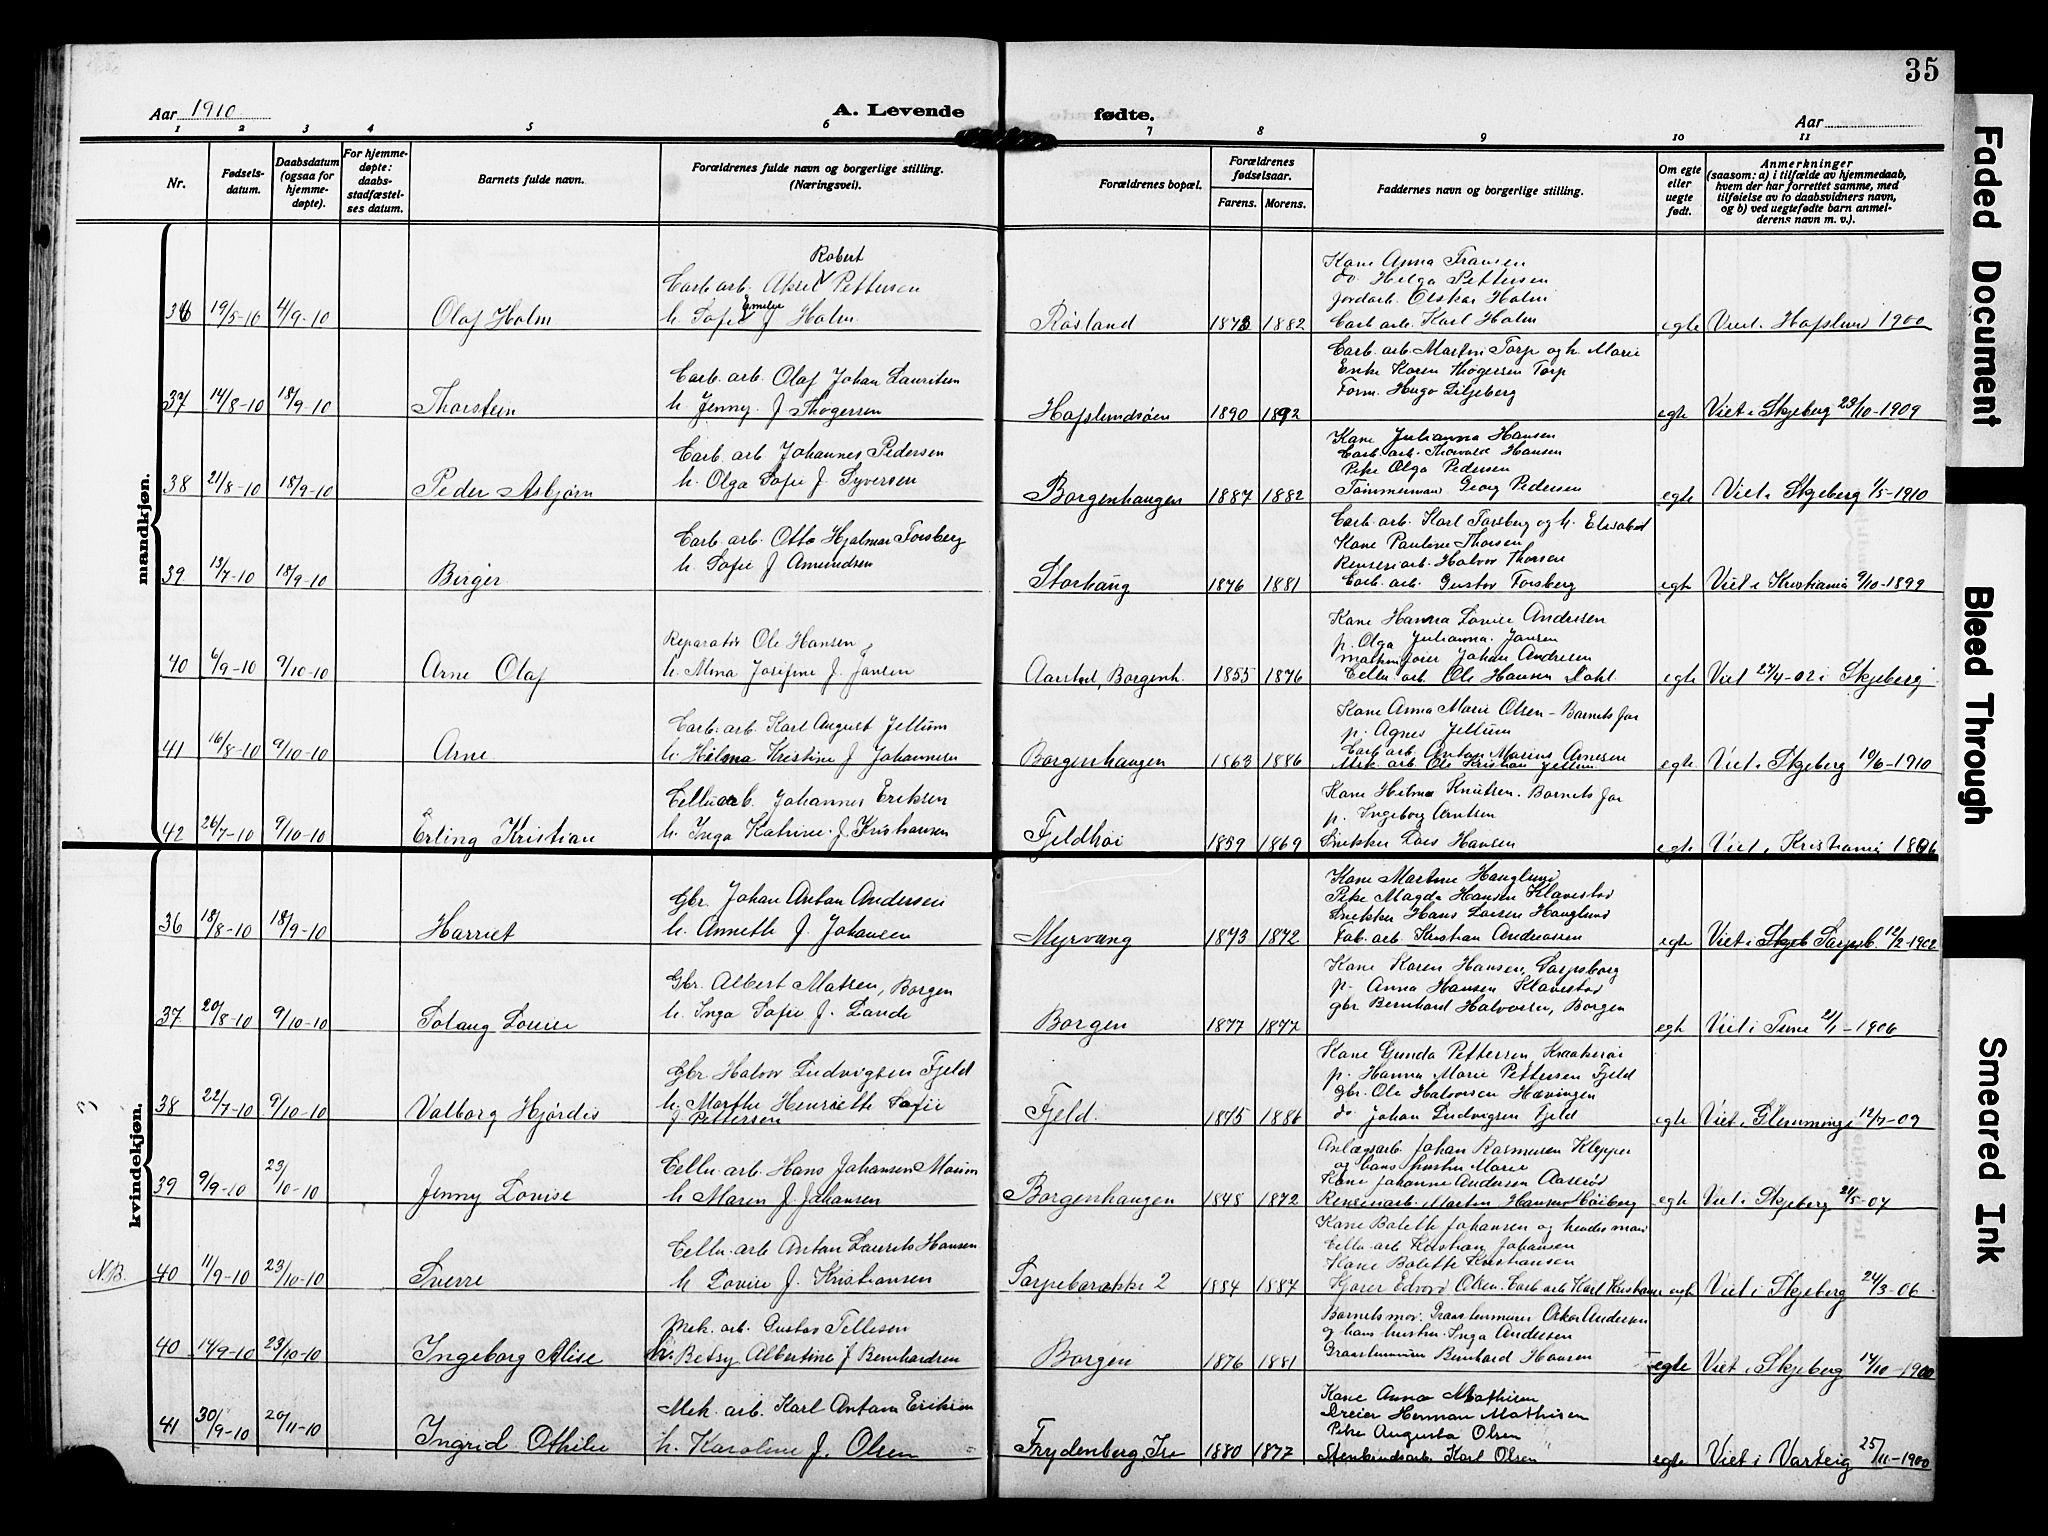 35
Aar 1910
A. Levende fødte.
Aar
1 2 3 4 5 6 7 8 9 10 11
Nr.
Fødsels-
datum.
Daabsdatum
(ogsaa for
hjemme-
døpte).
For hjemme-
døpte:
daabs-
stadfæstel-
ses datum.
Barnets fulde navn.
Forældrenes fulde navn og borgerlige stilling.
(Næringsvei).
Forældrenes bopæl.
Forældrenes
fødselsaar.
Farens. Morens.
Faddernes navn og borgerlige stilling.
Om egte
eller
uegte
født.
Anmerkninger
(saasom: a) i tilfælde av hjemmedaab,
hvem der har forrettet samme, med
tilføielse av to daabsvidners navn,
og b) ved uegtefødte barn anmel-
derens navn m. v.).
mandkjøn.
36 19/5-10 4/9-10 Olaf Holm
Robert
Carb. arb. Aksel Pettersen
h. Sofie Emilie f Holm
Røsland 1873 1882
Kone Anna Fransen
do Helga Pettersen
Jordarb. Oskar Holm
Carb. arb. Karl Holm
egte Viet i Hafslund 1900
37 14/8-10 18/9-10 Thorstein
Carb. arb. Olaf Johan Lauritsen
h. Jenny f Thøgersen
Hafslundsøen 1890 1892
Carb. arb. Martin Torp og h. Marie
Enke Karen Thøgersen Torp
Form. Hugo Liljeberg
egte Viet i Skjeberg 23/10-1909
38 21/8-10 18/9-10 Peder Asbjørn
Carb. arb Johannes Pedersen
h. Olga Sofie f. Syversen
Borgenhaugen 1887 1882
Kone Julianna Hansen
Carb. arb. Thorvald Hansen
Pike Olga Pedersen
Tømmermand Georg Pedersen
egte Viet i Skjeberg 1/5-1910
39 13/7-10 18/9-10 Birger
Carb. arb. Otto Hjalmar Forsberg
h. Sofie f Amundsen
Storhaug 1876 1881
Carb. arb. Karl Forsberg og h. Elisabet
Kone Pauline Thorsen
Renseriarb. Halvor Thorsen
Carb. arb. Gustav Forsberg
egte Viet i Kristiania 9/10-1899
40 6/9-10 9/10-10 Arne Olaf
Reparatør Ole Hansen
h. Mina Josefine f. Jansen
Aarstad, Borgenh. 1855 1876
Kone Hanna Lovise Andersen
p. Olga Julianna Jansen
Maskinfører Johan Andresen
Cellu arb. Ole Hansen Dahl
egte Viet 27/4-02 i Skjeberg
41 16/8-10 9/10-10 Arne
Carb. arb. Karl August Jellum
h. Helma Kristine f Johannesen
Borgenhaugen 1863 1886
Kone Anna Marie Olsen - Barnets far
p. Agnes Jellum
Carb. arb. Anton Marius Arnesen
Mek. arb. Ole Kristian Jellum
egte Viet i Skjeberg 10/6-1910
42 26/7-10 9/10-10 Erling Kristian
Celluarb. Johannes Eriksen
h. Inga Katrine f. Kristiansen
Fjeldhøi 1859 1869
Kone Helma Knutsen. Barnets far
p. Ingeborg Arntsen
Snekker Lars Hansen
egte Viet i Kristiania 1896
kvindekjøn.
36 18/8-10 18/9-10 Harriet
Gbr. Johan Anton Andersen
h. Annette f. Johansen
Myrvang 1873 1872
Kone Martine Hauglund
Pike Magda Hansen Klavestad
Snekker Hans Larsen Hauglund
Fab. arb. Kristian Andreassen
egte Viet i Skjeb Sarpsb. 12/2-1902
37 20/8-10 9/10-10 Solaug Lovise
Gbr. Albert Matsen, Borgen
h. Inga Sofie f. Lande
Borgen 1877 1877
Kone Karen Hansen, Sarpsborg
p. Anna Hansen Klavestad
gbr Bernhard Halvorsen, Borgen
egte Viet i Tune 21/1-1906
38 22/7-10 9/10-10 Valborg Hjørdis
Gbr Halvor Ludvigsen Fjeld
h. Marthe Henriette Sofie
f Pettersen
Fjeld. 1875 1886
Kone Gunda Pettersen Kraakerøi
p. Hanna Marie Pettersen Fjeld
gbr. Ole Halvorsen Hævingen
do Johan Ludvigsen Fjeld
egte Viet i Glemminge 12/7-09
39 9/9-10 23/10-10 Jenny Lovise
Cellu. arb. Hans Johansen Moum
h Maren f. Johansen
Borgenhaugen 1848 1872
Anlægsarb. Johan Rasmussen Klepper
og hans hustru Marie
Kone Johanne Andersen Aaserød
Renseriarb. Martin Hansen Høiberg
egte Viet i Skjeberg 21/5-07
N.B. 40 11/9-10 23/10-10 Sverre
Cellu. arb Anton Laurits Hansen
h Lovise f. Kristiansen
Torpebarakke 2 1884 1887
Kone Bolette Johansen og hendes man
Cellu arb Kristian Johansen
Kone Bolette Kristiansen
Kjører Edvard Olsen. Carb arb Karl Kristiansen
egte Viet i Skjeberg 24/3-06
40 14/9-10 23/10-10 Ingeborg Alise
Mek. arb. Gustav Tellesen
h. Betsy Albertine f Bernhardsen
Borgen 1876 1881
Barnets mor. Graastensmurer Oskar Andersen
og hans hustru Inga Andersen
Graastensmurer Bernhard Hansen
egte Viet i Skjeberg 14/10-1900
41 30/9-10 20/11-10 Ingrid Othilie
Mek. arb. Karl Antom Eriksen
h. Karoline f. Olsen
Frydenberg, Ise 1880 1877
Kone Anna Mathisen
Dreier Herman Mathisen
Pike Augusta Olsen
Stenbrudsarb. Karl Olsen
egte Viet i Varteig 25/11-1900
Faded Document
Bleed Through
Smeared Ink